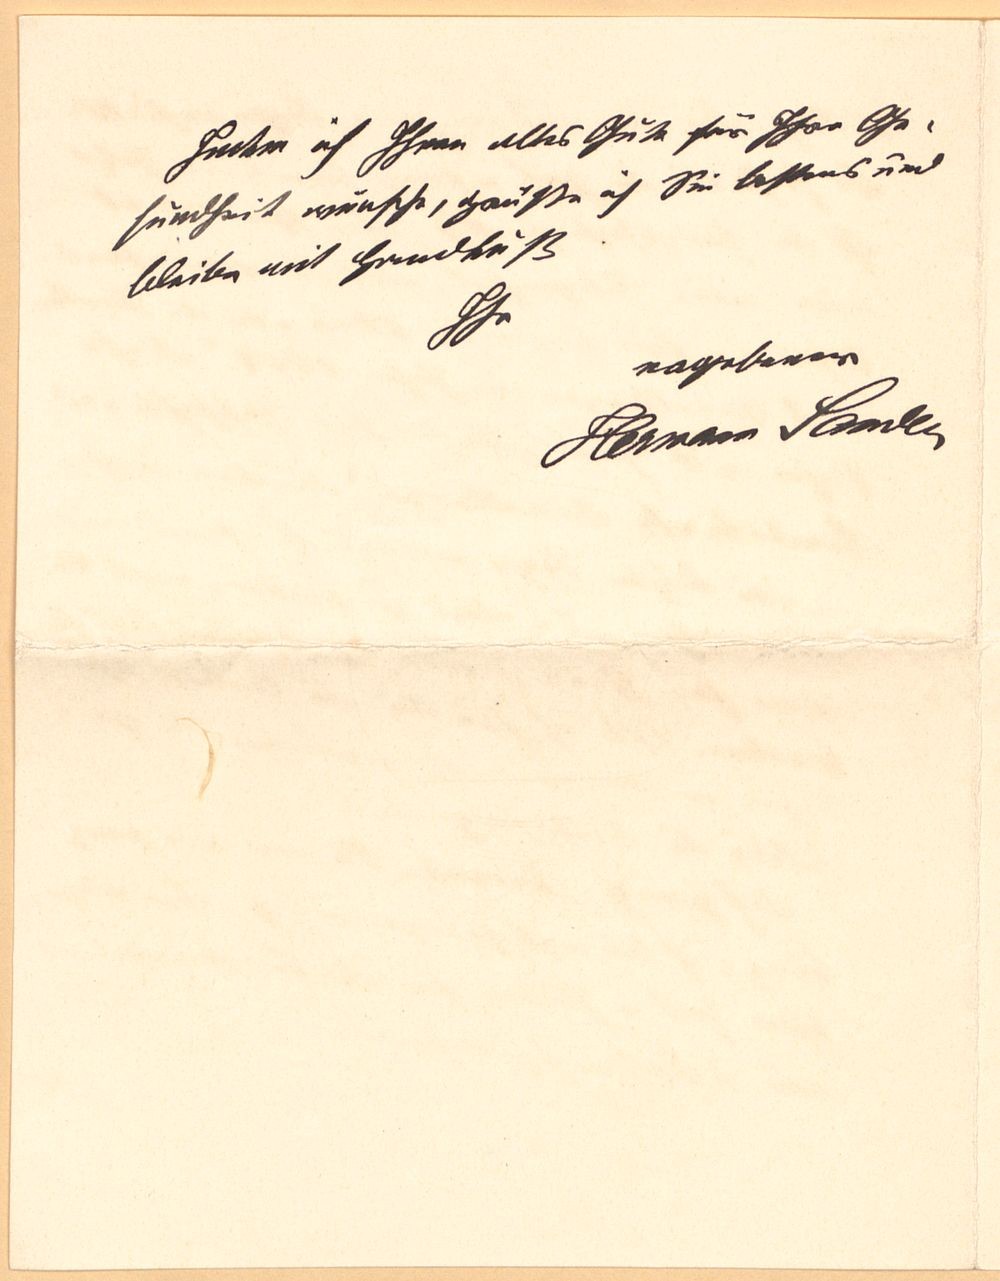 Indem ich Ihnen alles Gute für Ihre Ge-
sundheit wünsche, grüße ich Sie bestens und
bleibe mit Handkuß
Ihr
ergebener
Hermann